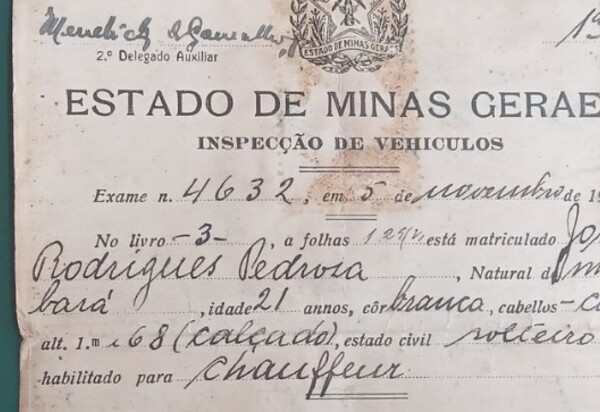 de Carvalho
2.º Delegado Auxiliar
ESTADO DE MINAS GERAES
19
ESTADO DE MINAS GERAE
INSPECÇÃO DE VEHICULOS
Exame n. 4632, em 5 de novembro de 19
No livro -3-, a folhas está matriculado Jo
Rodrigues Pedrosa, Natural d
bará, idade 21 annos, côr branca, cabellos - c
alt. 1.m 68 (calçado), estado civil solteiro
habilitado para chauffeur